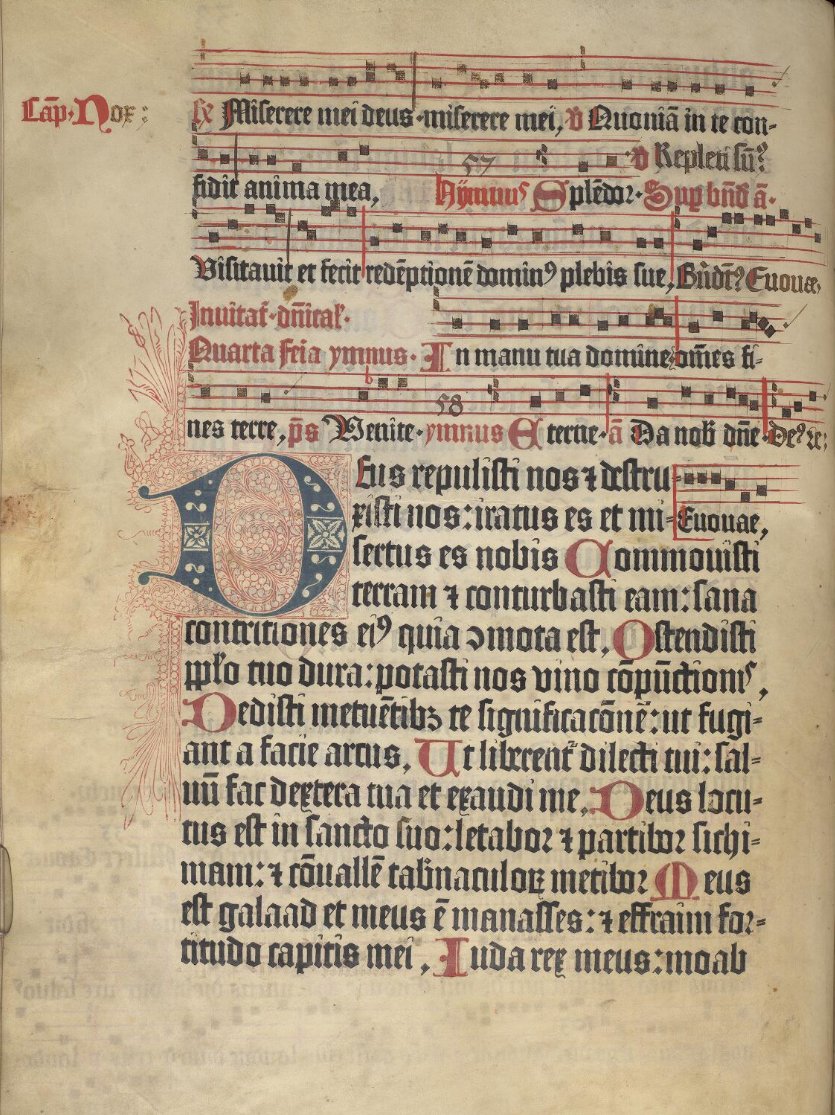 Cap̄. Nox:
Miserere mei deus miserere mei, v̄ Quoniā in te con-
57 v̄ Repleti sūꝰ
fidit anima mea, hymnus Splēdor. Sup bn̄d ā.
Visitauit et fecit redēptionē dominꝰ plebis sue, Bn̄dtꝰ Euouae
Inuitat. dn̄ical.
Quarta feria ymnus. In manu tua domine om̄es fi-
58
nes terre, p̄s Venite. ymnus Eterne. ā Da nob dn̄e. Deꝰ re:
Deus repulisti nos ⁊ destru-
xisti nos: iratus es et mi- Euouae,
sertus es nobis Commouisti
terram ⁊ conturbasti eam: sana
contritiones eiꝰ quia ɔmota est, Ostendisti
pplo tuo dura: potasti nos vino cōpūctionis,
Dedisti metuētibꝫ te significacōnē: ut fugi-
ant a facie arcus, Ut liberent᷑ dilecti tui: sal-
uū fac dextera tua et exaudi me, Deus locu-
tus est in sancto suo: letabor ⁊ partibor sichi-
mam: ⁊ cōuallē tabn̄aculoꝝ metibor Meus
est galaad et meus ē manasses: ⁊ effraim for-
titudo capitis mei, Iuda rex meus: moab